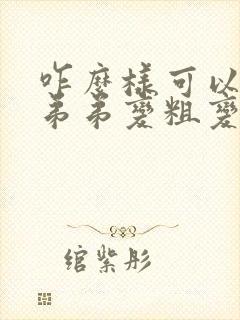 咋麼樣可以
弟弟變粗變
綰紫彤